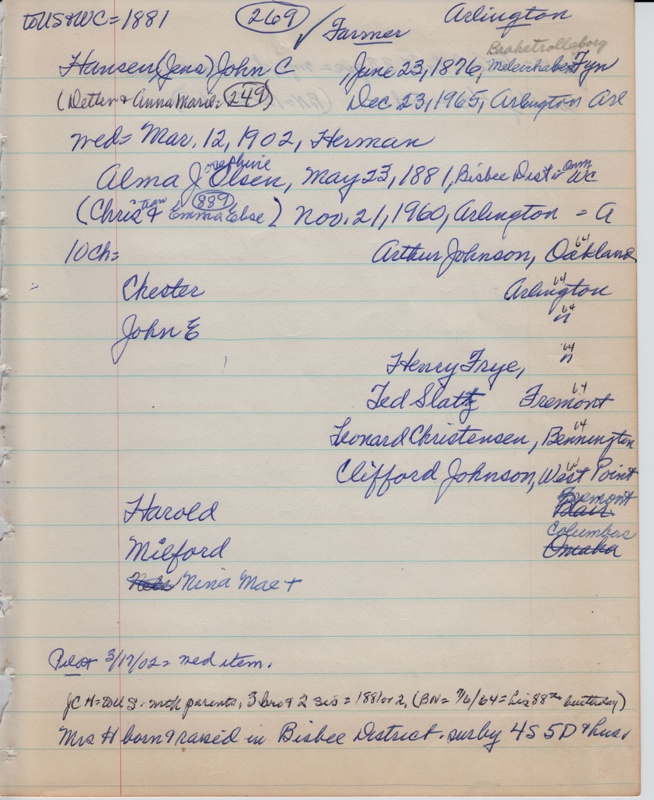 to US & WC = 1881 (269) ✓ Farmer Arlington
Brahetrolleborg
Hansen (Jens) John C , June 23, 1876, Fyn
(Detlen & Anna Marie = (249) Dec 23, 1965, Arlington Arl
med = Mar. 12, 1902, Herman
Alma Josephine Olsen, May 23, 1881, Bisbee Dist in WC
(Christian & Emma Else (889)) Nov. 21, 1960, Arlington = A
10 Ch = Arthur Johnson, Oakland 64
Chester Arlington 64
John E " 64
Henry Frye, " 64
Ted Slatz Fremont 64
Leonard Christensen, Bennington 64
Clifford Johnson, West Point 64
Fremont
Harold Blair
Columbus
Milford Omaha
Nina Mae +
Pilot 3/19/02 = med item.
JC H = to U.S. with parents, 3 bro & 2 sis = 1881 or 2, (BN = 7/6/64 = his 88th birthday)
Mrs H born & raised in Bisbee District. sur by 4S 5D & hus.